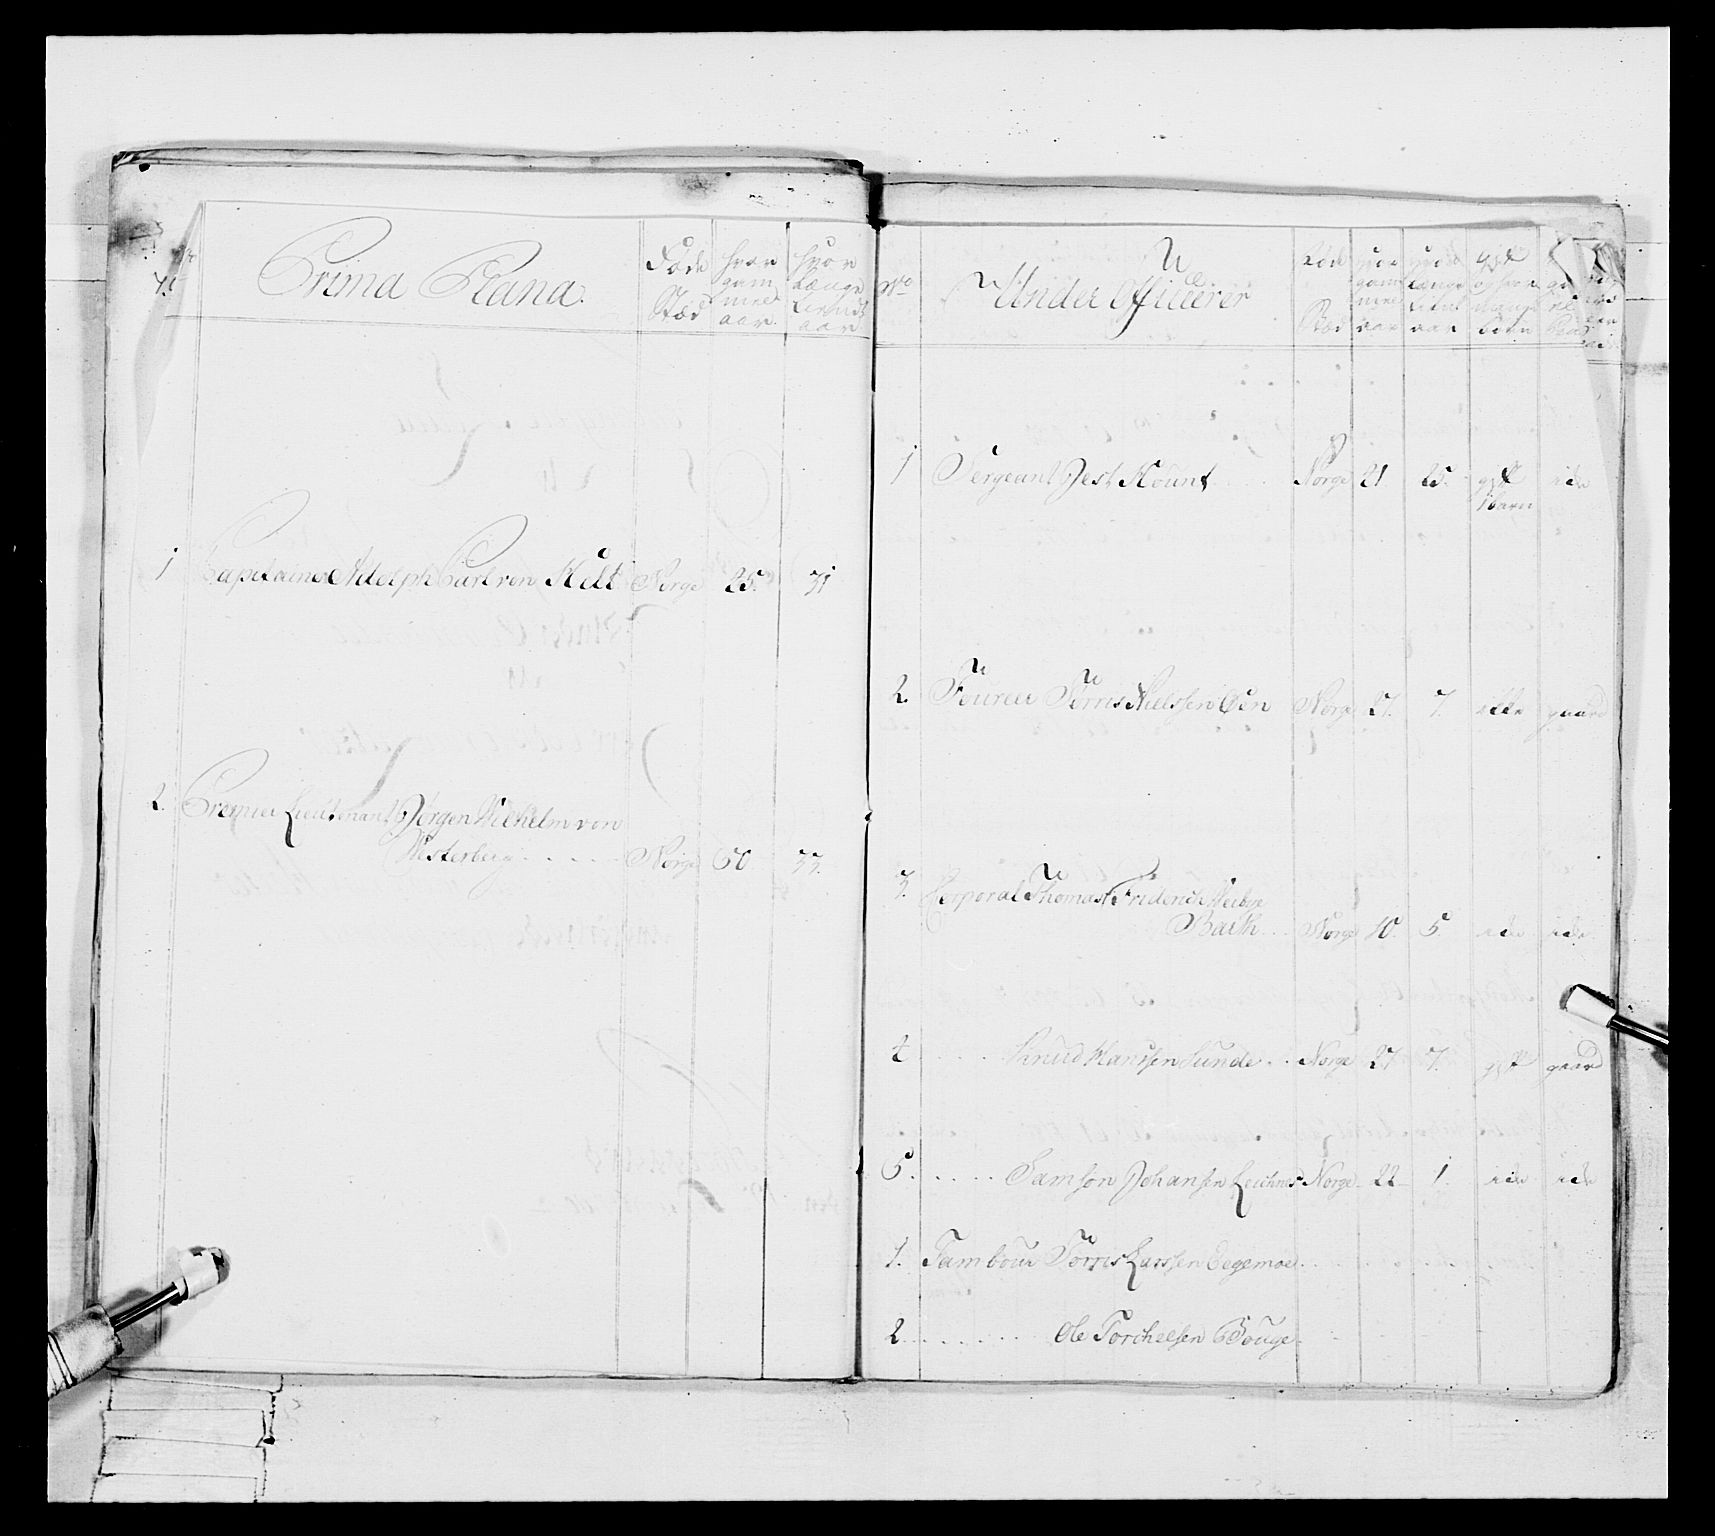 No
Prima Plana.
Føde Stæd
hvor gam mel aar.
hvor Længe tient aar
1 Capitaine Adolph Carl von Kelt Norge 25. 31
2. Premier Lieutenant Jørgen Wilhelm von
Westerberg . . . . . Norge 50 33.
No
Under Officerer
Føde Stæd
hvor gam mel aar
hvor længe tient aar
gift og hvor mange børn
1 Sergeant Jest Kount . . . Norge 21. 25. gift ide
1 barn
2. Fourier Tørris Nielssen Øen Norge 27. 7. ikke gaard
3. Corporal Thomas Friderich Meibye
Barth . . Norge 10. 5. ide ide
4 . . . . Knud Hanssen Sunde . . Norge 27 7. gift gaard
5. . . . . Samson Johansen Leichnes Norge 22 1. ide ide
1. Tambour Tørris Larssen Eegemoe.
2. . . . . . . Ole Torchelsen Bouge